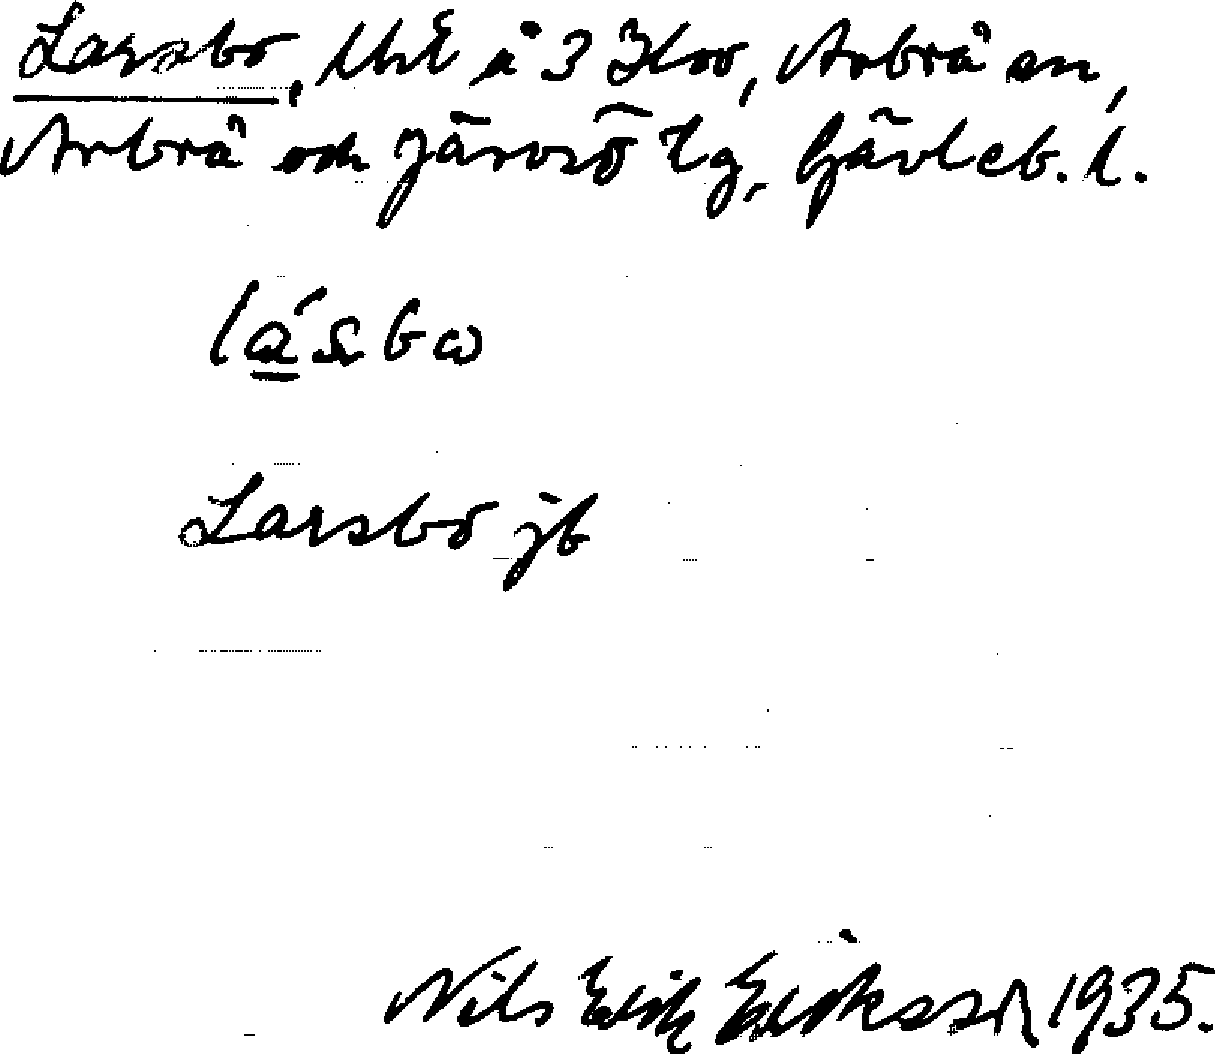 Larsbo, thE å 3 Koo, Arbrå sn,
Arbrå och Järvsö tg, Gävleb. l.
lásbω
Larsbo jb
Nils Erik Eriksson 1935.